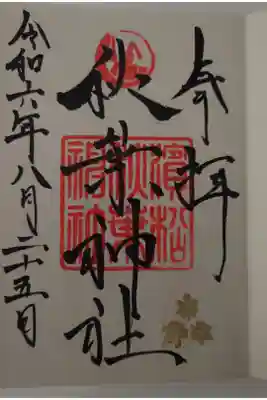 奉拝
秋葉神社
令和六年八月二十五日
濱松
秋葉
神社